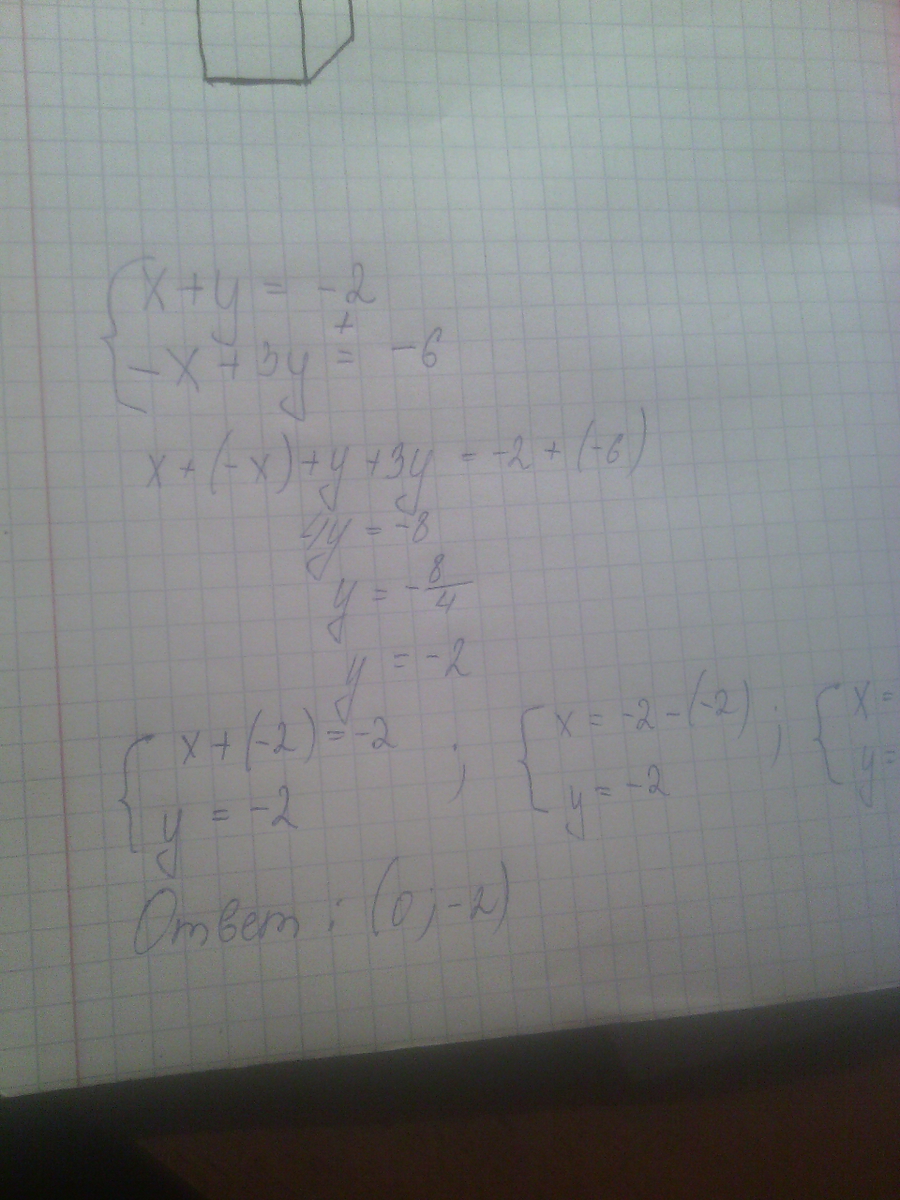 x + y = -2
+
-x + 3y = -6
x + (-x) + y + 3y = -2 + (-6)
4y = -8
y = -8/4
y = -2
{ x + (-2) = -2 ; { x = -2 - (-2) ; { x =
y = -2 y = -2 y =
Ответ: (0; -2)